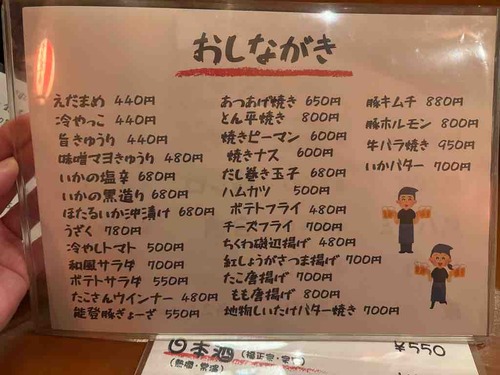 おしながき
えだまめ 440円
冷やっこ 440円
旨きゅうり 440円
味噌マヨきゅうり 480円
いかの塩辛 680円
いかの黒造り 680円
ほたるいか沖漬け 680円
うざく 780円
冷やしトマト 500円
和風サラダ 700円
ポテトサラダ 550円
たこさんウインナー 480円
能登豚ぎょーざ 550円
あつあげ焼き 650円
とん平焼き 800円
焼きピーマン 600円
焼きナス 600円
だし巻き玉子 680円
ハムカツ 500円
ポテトフライ 480円
チーズフライ 700円
ちくわ磯辺揚げ 480円
紅しょうがさつま揚げ 700円
たこ唐揚げ 700円
もも唐揚げ 800円
地物しいたけバター焼き 700円
豚キムチ 880円
豚ホルモン 800円
牛バラ焼き 950円
いかバター 700円
日本酒
¥550